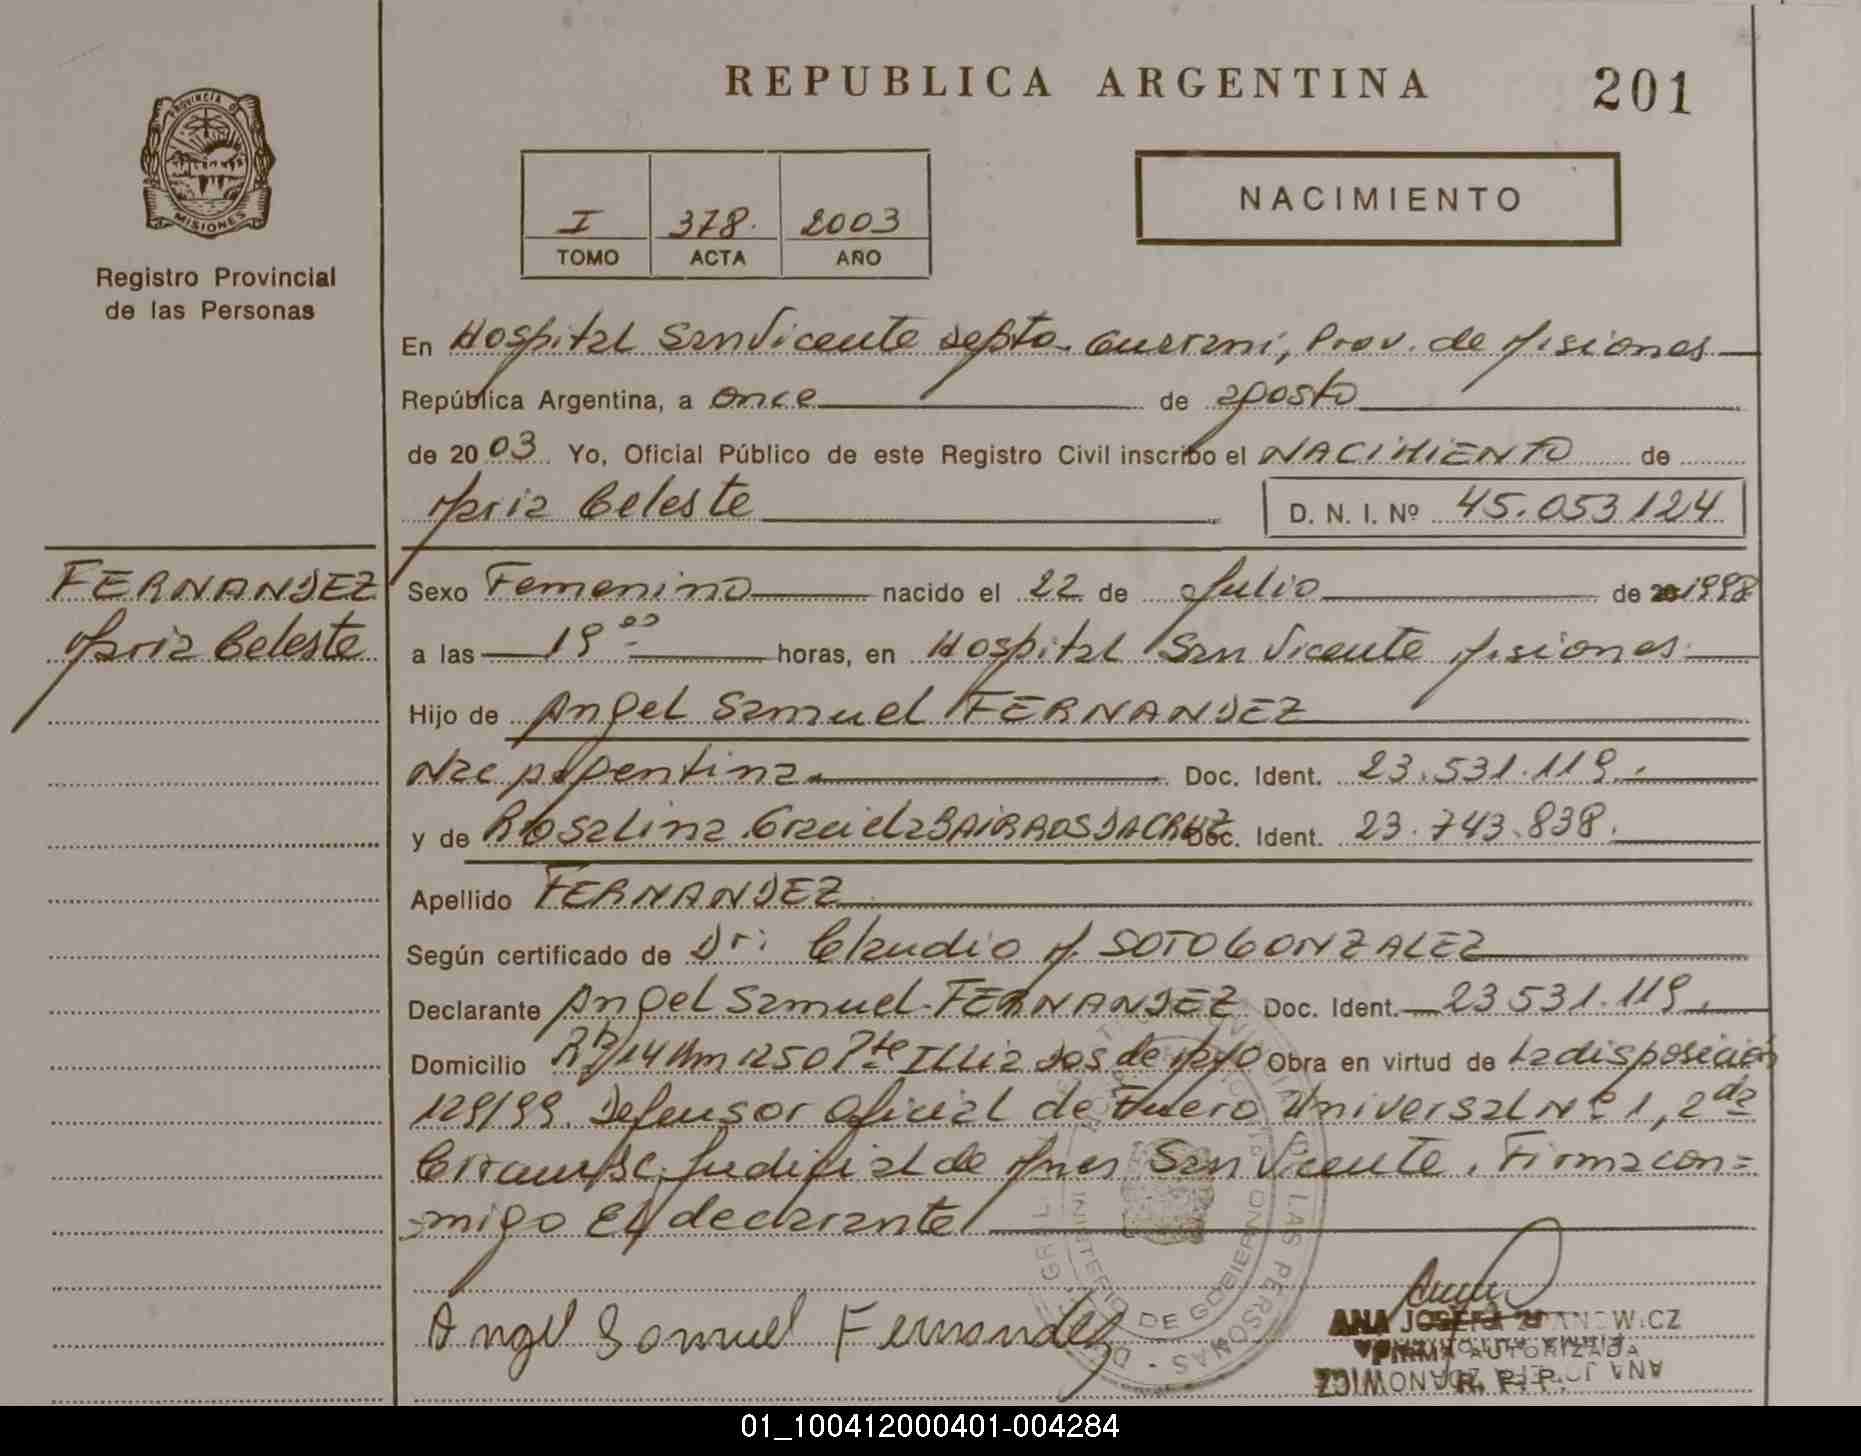 REPUBLICA ARGENTINA
201
PROVINCIA DE
MISIONES
Registro Provincial
de las Personas
I 378. 2003
TOMO ACTA AÑO
NACIMIENTO
En Hospital San Vicente Depto. Guarani, Prov. de Misiones
República Argentina, a once de agosto
de 2003 Yo, Oficial Público de este Registro Civil inscribo el NACIMIENTO de
Maria Celeste D. N. I. Nº 45.053.124
FERNANDEZ
Maria Celeste
Sexo Femenino nacido el 22 de Julio de 1998
a las 19 00 horas, en Hospital San Vicente Misiones
Hijo de Angel Samuel FERNANDEZ
Nac Argentina. Doc. Ident. 23.531.119.
y de Rosalina Graciela BAIRROS DA CRUZ Doc. Ident. 23.743.838.
Apellido FERNANDEZ
Según certificado de Dr: Claudio M. SOTO GONZALEZ
Declarante Angel Samuel FERNANDEZ Doc. Ident. 23 531.119.
Domicilio 14 Km 1250 Pte Illia Dos de Mayo Obra en virtud de La disposición
129/99. Defensor Oficial de Fuero Universal Nº 1, 2da
Circunsc. Judicial de Mnes San Vicente. Firma con=
migo El declarante
Angel Samuel Fernandez
LAS PERSONAS
DE GOBIERNO
ANA JOSEFA ZDANOWICZ
FIRMA AUTORIZADA
R. P. P.
01_100412000401-004284